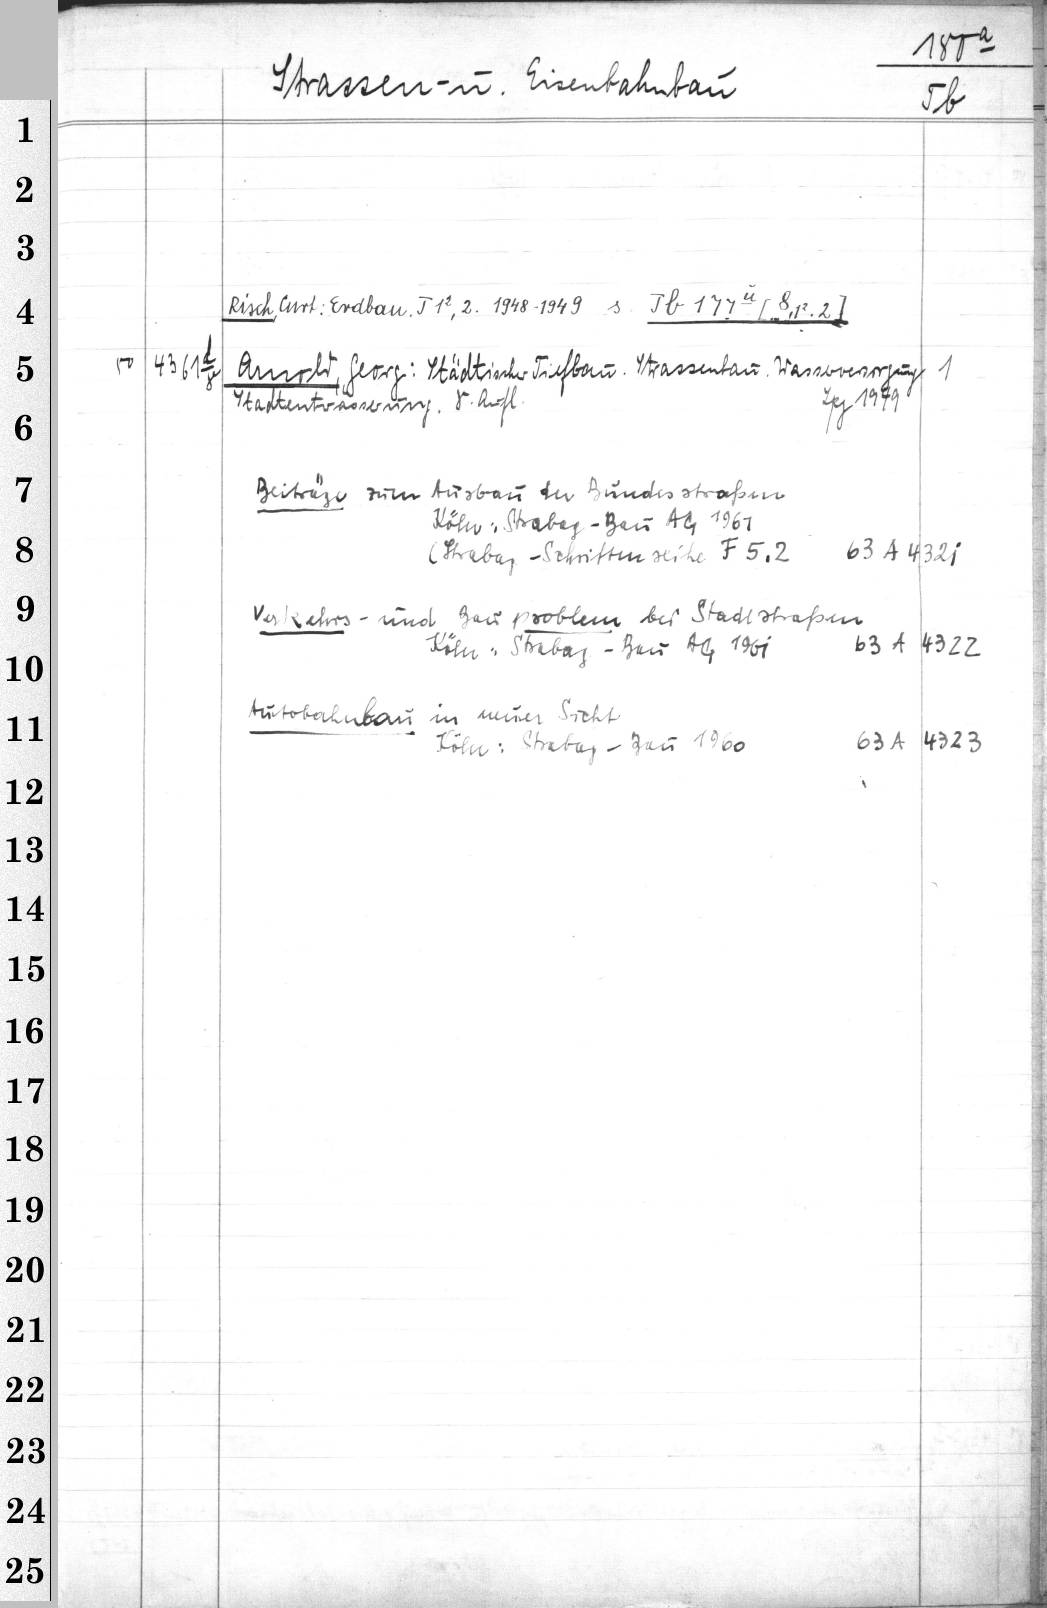 180a
Strassen- u. Eisenbahnbau
Tb
1
2
3
4 Risch, Curt: Erdbau. T 1², 2. 1948-1949 s. Tb 177ü [8,1².2]
5 50 4361 d/8 Arnold, Georg: Städtischer Tiefbau. Strassenbau. Wasserversorgung 1
Stadtentwässerung. 8. Aufl. Lpz 1949
6
7 Beiträge zum Ausbau der Bundesstraßen
Köln: Strabag-Bau AG 1961
8 (Strabag-Schriftenreihe F 5.2 63 A 4321
9 Verkehrs- und Bauproblem bei Stadtstraßen
Köln: Strabag-Bau AG 1961 63 A 4322
10
11 Autobahnbau in neuer Sicht
Köln: Strabag-Bau 1960 63 A 4323
12
13
14
15
16
17
18
19
20
21
22
23
24
25